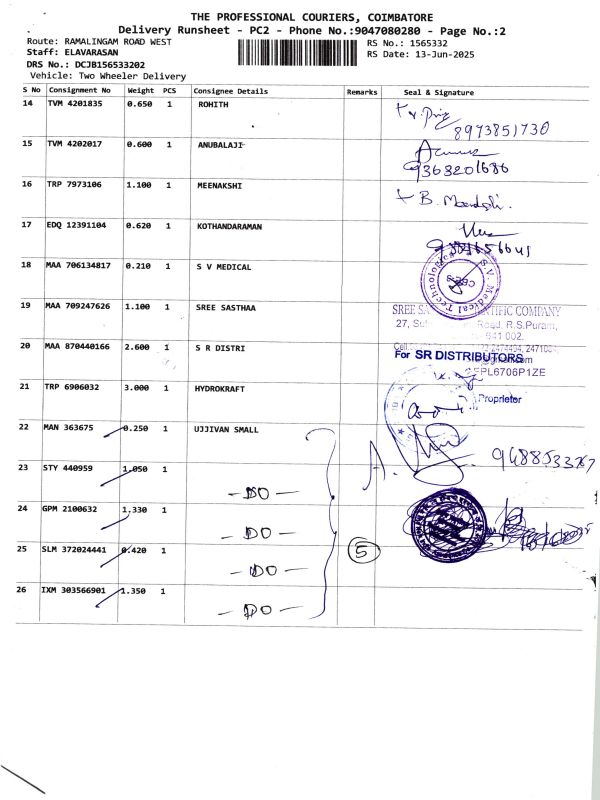 THE PROFESSIONAL COURIERS, COIMBATORE
Delivery Runsheet - PC2 - Phone No.:9047080280 - Page No.:2
Route: RAMALINGAM ROAD WEST RS No.: 1565332
Staff: ELAVARASAN RS Date: 13-Jun-2025
DRS No.: DCJB156533202
Vehicle: Two Wheeler Delivery
S No Consignment No Weight PCS Consignee Details Remarks Seal & Signature
14 TVM 4201835 0.650 1 ROHITH
8973851730
15 TVM 4202017 0.600 1 ANUBALAJI
9363201686
16 TRP 7973106 1.100 1 MEENAKSHI
B.
17 EDQ 12391104 0.620 1 KOTHANDARAMAN
18 MAA 706134817 0.210 1 S V MEDICAL
S.V. Medical Technologies
19 MAA 709247626 1.100 1 SREE SASTHAA
SREE COMPANY
27, Road, R.S.Puram,
641 002.
20 MAA 870440166 2.600 1 S R DISTRI
For SR DISTRIBUTORS
21 TRP 6906032 3.000 1 HYDROKRAFT
Proprietor
22 MAN 363675 0.250 1 UJJIVAN SMALL
23 STY 440959 1.050 1
- DO -
24 GPM 2100632 1.330 1
- DO -
25 SLM 372024441 0.420 1 5
- DO -
26 IXM 303566901 1.350 1
- DO -